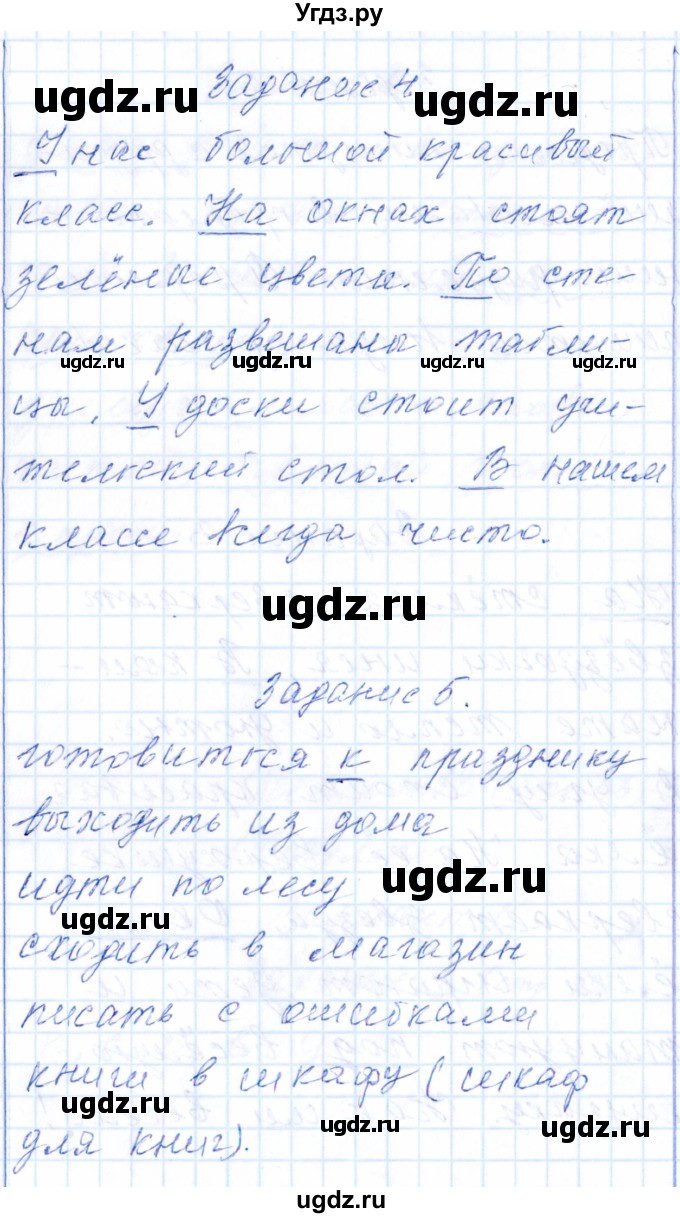 Угдз.ру
Задание 4.
ugdz.ru ugdz.ru
У нас большой красивый
класс. На окнах стоят
ugdz.ru
зелёные цветы. По сте-
нам развешаны табли-
ugdz.ru ugdz.ru ugdz.ru
цы. У доски стоит учи-
тельский стол. В нашем
ugdz.ru
классе всегда чисто.
ugdz.ru
Задание 5.
готовиться к празднику
выходить из дома
идти по лесу
ugdz.ru
ugdz.ru
сходить в магазин
писать с ошибками
книги в шкафу (шкаф
ugdz.ru
для книг).
ugdz.ru ugdz.ru
ugdz.ru